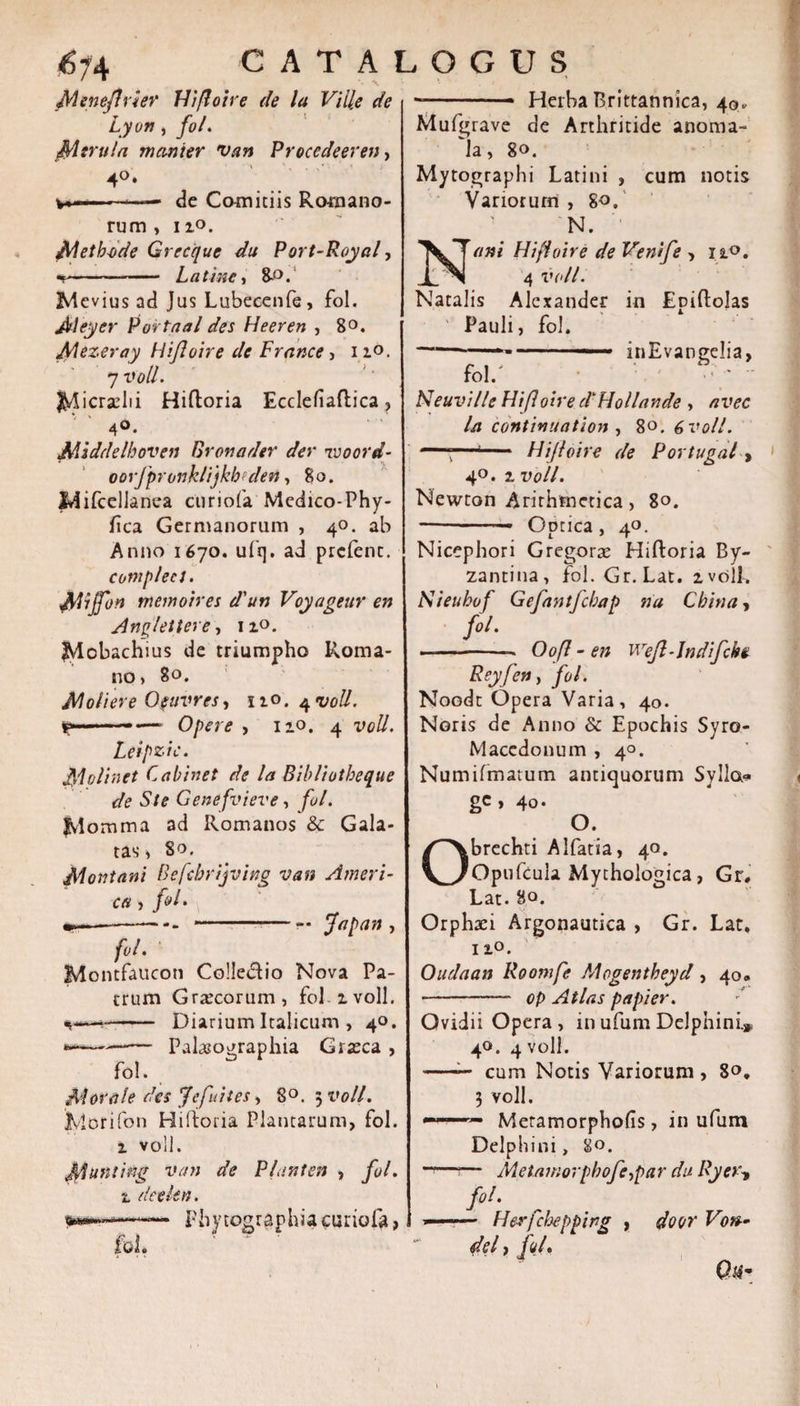 674 CATALOGUS
Meneſtrier Hiſtoire de la Ville de
Lyon, fol.
Merula manier van Procedeeren,
4º.
——— de Comitiis Romano-
rum, 12º.
Methode Grecque du Port-Royal,
——— Latine, 8º.
Mevius ad Jus Lubecenſe, fol.
Meyer Portaal des Heeren, 8º.
Mezeray Hiſtoire de France, 12º.
7 voll.
Micrælii Hiſtoria Eccleſiaſtica,
4º.
Middelhoven Bronader der woord-
oorſpronklijkheden, 8º.
Miſcellanea curioſa Medico-Phy-
ſica Germanorum, 4º. ab
Anno 1670. uſq. ad preſent.
complect.
Miſſon memoires d'un Voyageur en
Angletere, 12º.
Mobachius de triumpho Roma-
no, 8º.
Moliere Oeuvres, 12º. 4 voll.
——— Opere, 12º. 4 voll.
Leipzic.
Molinet Cabinet de la Bibliotheque
de Ste Geneſvieve, fol.
Momma ad Romanos & Gala-
tas, 8º.
Montani Beſchrijving van Ameri-
ca, fol.
——— ——— Japan,
fol.
Montfaucon Collectio Nova Pa-
trum Græcorum, fol. 2 voll.
——— Diarium Italicum, 4º.
——— Palæographia Græca,
fol.
Morale des Jeſuites, 8º. 3 voll.
Moriſon Hiſtoria Plantarum, fol.
2 voll.
Munting van de Planten, fol.
2 deelen.
——— Phytographia curioſa,
fol.
——— Herba Brittannica, 4º.
Muſgrave de Arthritide anoma-
la, 8º.
Mytographi Latini, cum notis
Variorum, 8º.
N.
Nani Hiſtoire de Veniſe, 12º.
4 voll.
Natalis Alexander in Epiſtolas
Pauli, fol.
——— ——— in Evangelia,
fol.
Neuville Hiſtoire d'Hollande, avec
la continuation, 8º. 6 voll.
——— Hiſtoire de Portugal,
4º. 2 voll.
Newton Arithmetica, 8º.
——— Optica, 4º.
Nicephori Gregoræ Hiſtoria By-
zantina, fol. Gr. Lat. 2 voll.
Nieuhof Geſantſchap na China,
fol.
——— Ooſt-en Weſt-Indiſche
Reyſen, fol.
Noodt Opera Varia, 4º.
Noris de Anno & Epochis Syro-
Macedonum, 4º.
Numiſmatum antiquorum Sylla-
ge, 4º.
O.
Obrechti Alſatia, 4º.
Opuſcula Mythologica, Gr.
Lat. 8º.
Orphæi Argonautica, Gr. Lat.
12º.
Oudaan Roomſe Mogentheyd, 4º.
——— op Atlas papier.
Ovidii Opera, in uſum Delphini,
4º. 4 voll.
——— cum Notis Variorum, 8º.
3 voll.
——— Metamorphoſis, in uſum
Delphini, 8º.
——— Metamorphoſe, par du Ryer,
fol.
——— Herſchepping, door Von-
del, fol.
Ou-